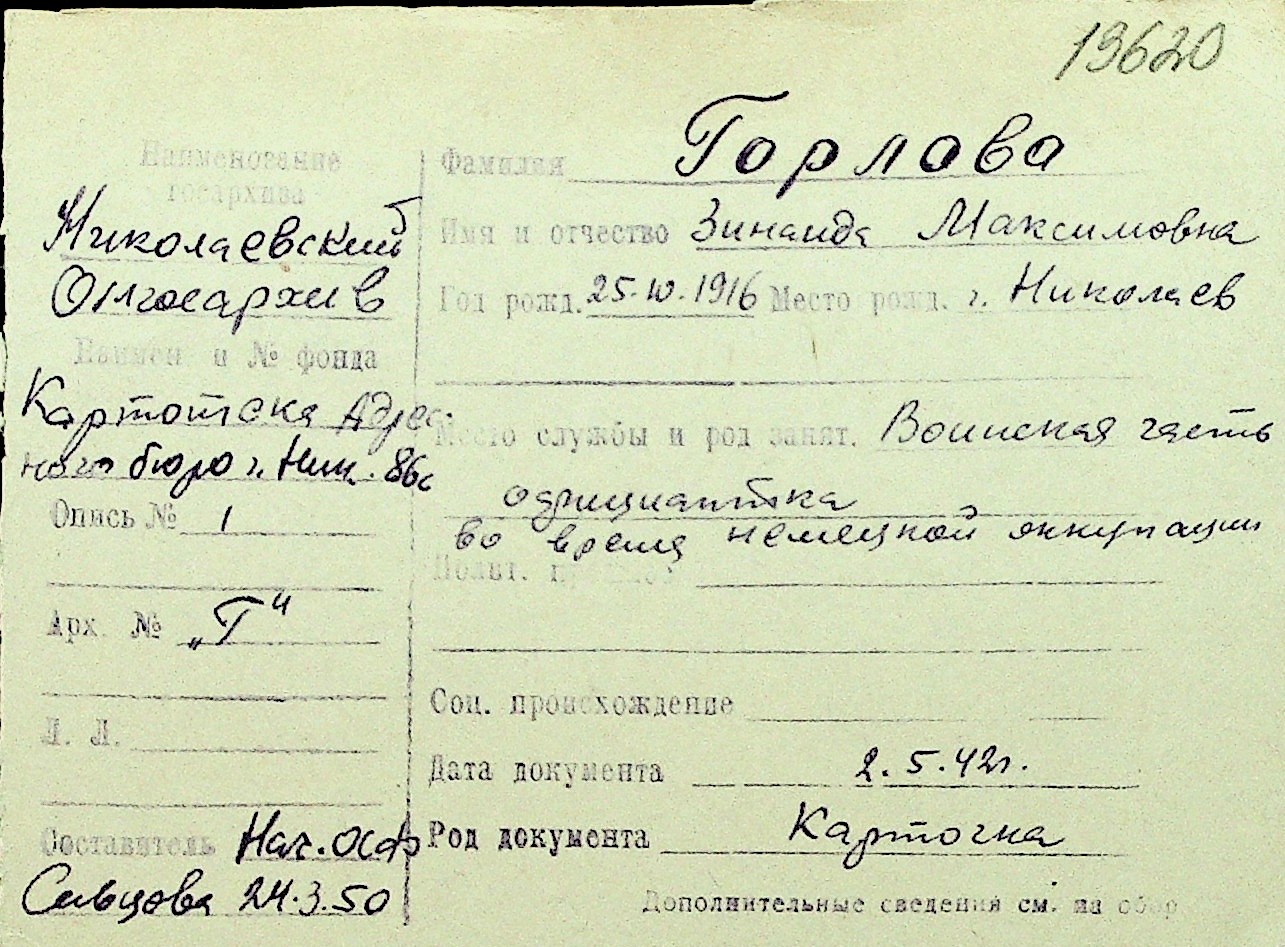 19620
Наименование
госархива
Николаевский
Облгосархив
Наимен и № фонда
Картотека Адрес-
ного бюро г. Ник. 86с
Опись № 1
Арх. № „Г“
Л. Л.
Составитель Нач. ОСФ
Сельцова 24.3.50
Фамилия Горлова
Имя и отчество Зинаида Максимовна
Год рожд. 25.10.1916 Место рожд. г. Николаев
Место службы и род занят. Воинская часть
официантка
во время немецкой оккупации
Полит.
Соц. происхождение
Дата документа 2.5.42г.
Род документа Карточка
Дополнительные сведения см. на обор